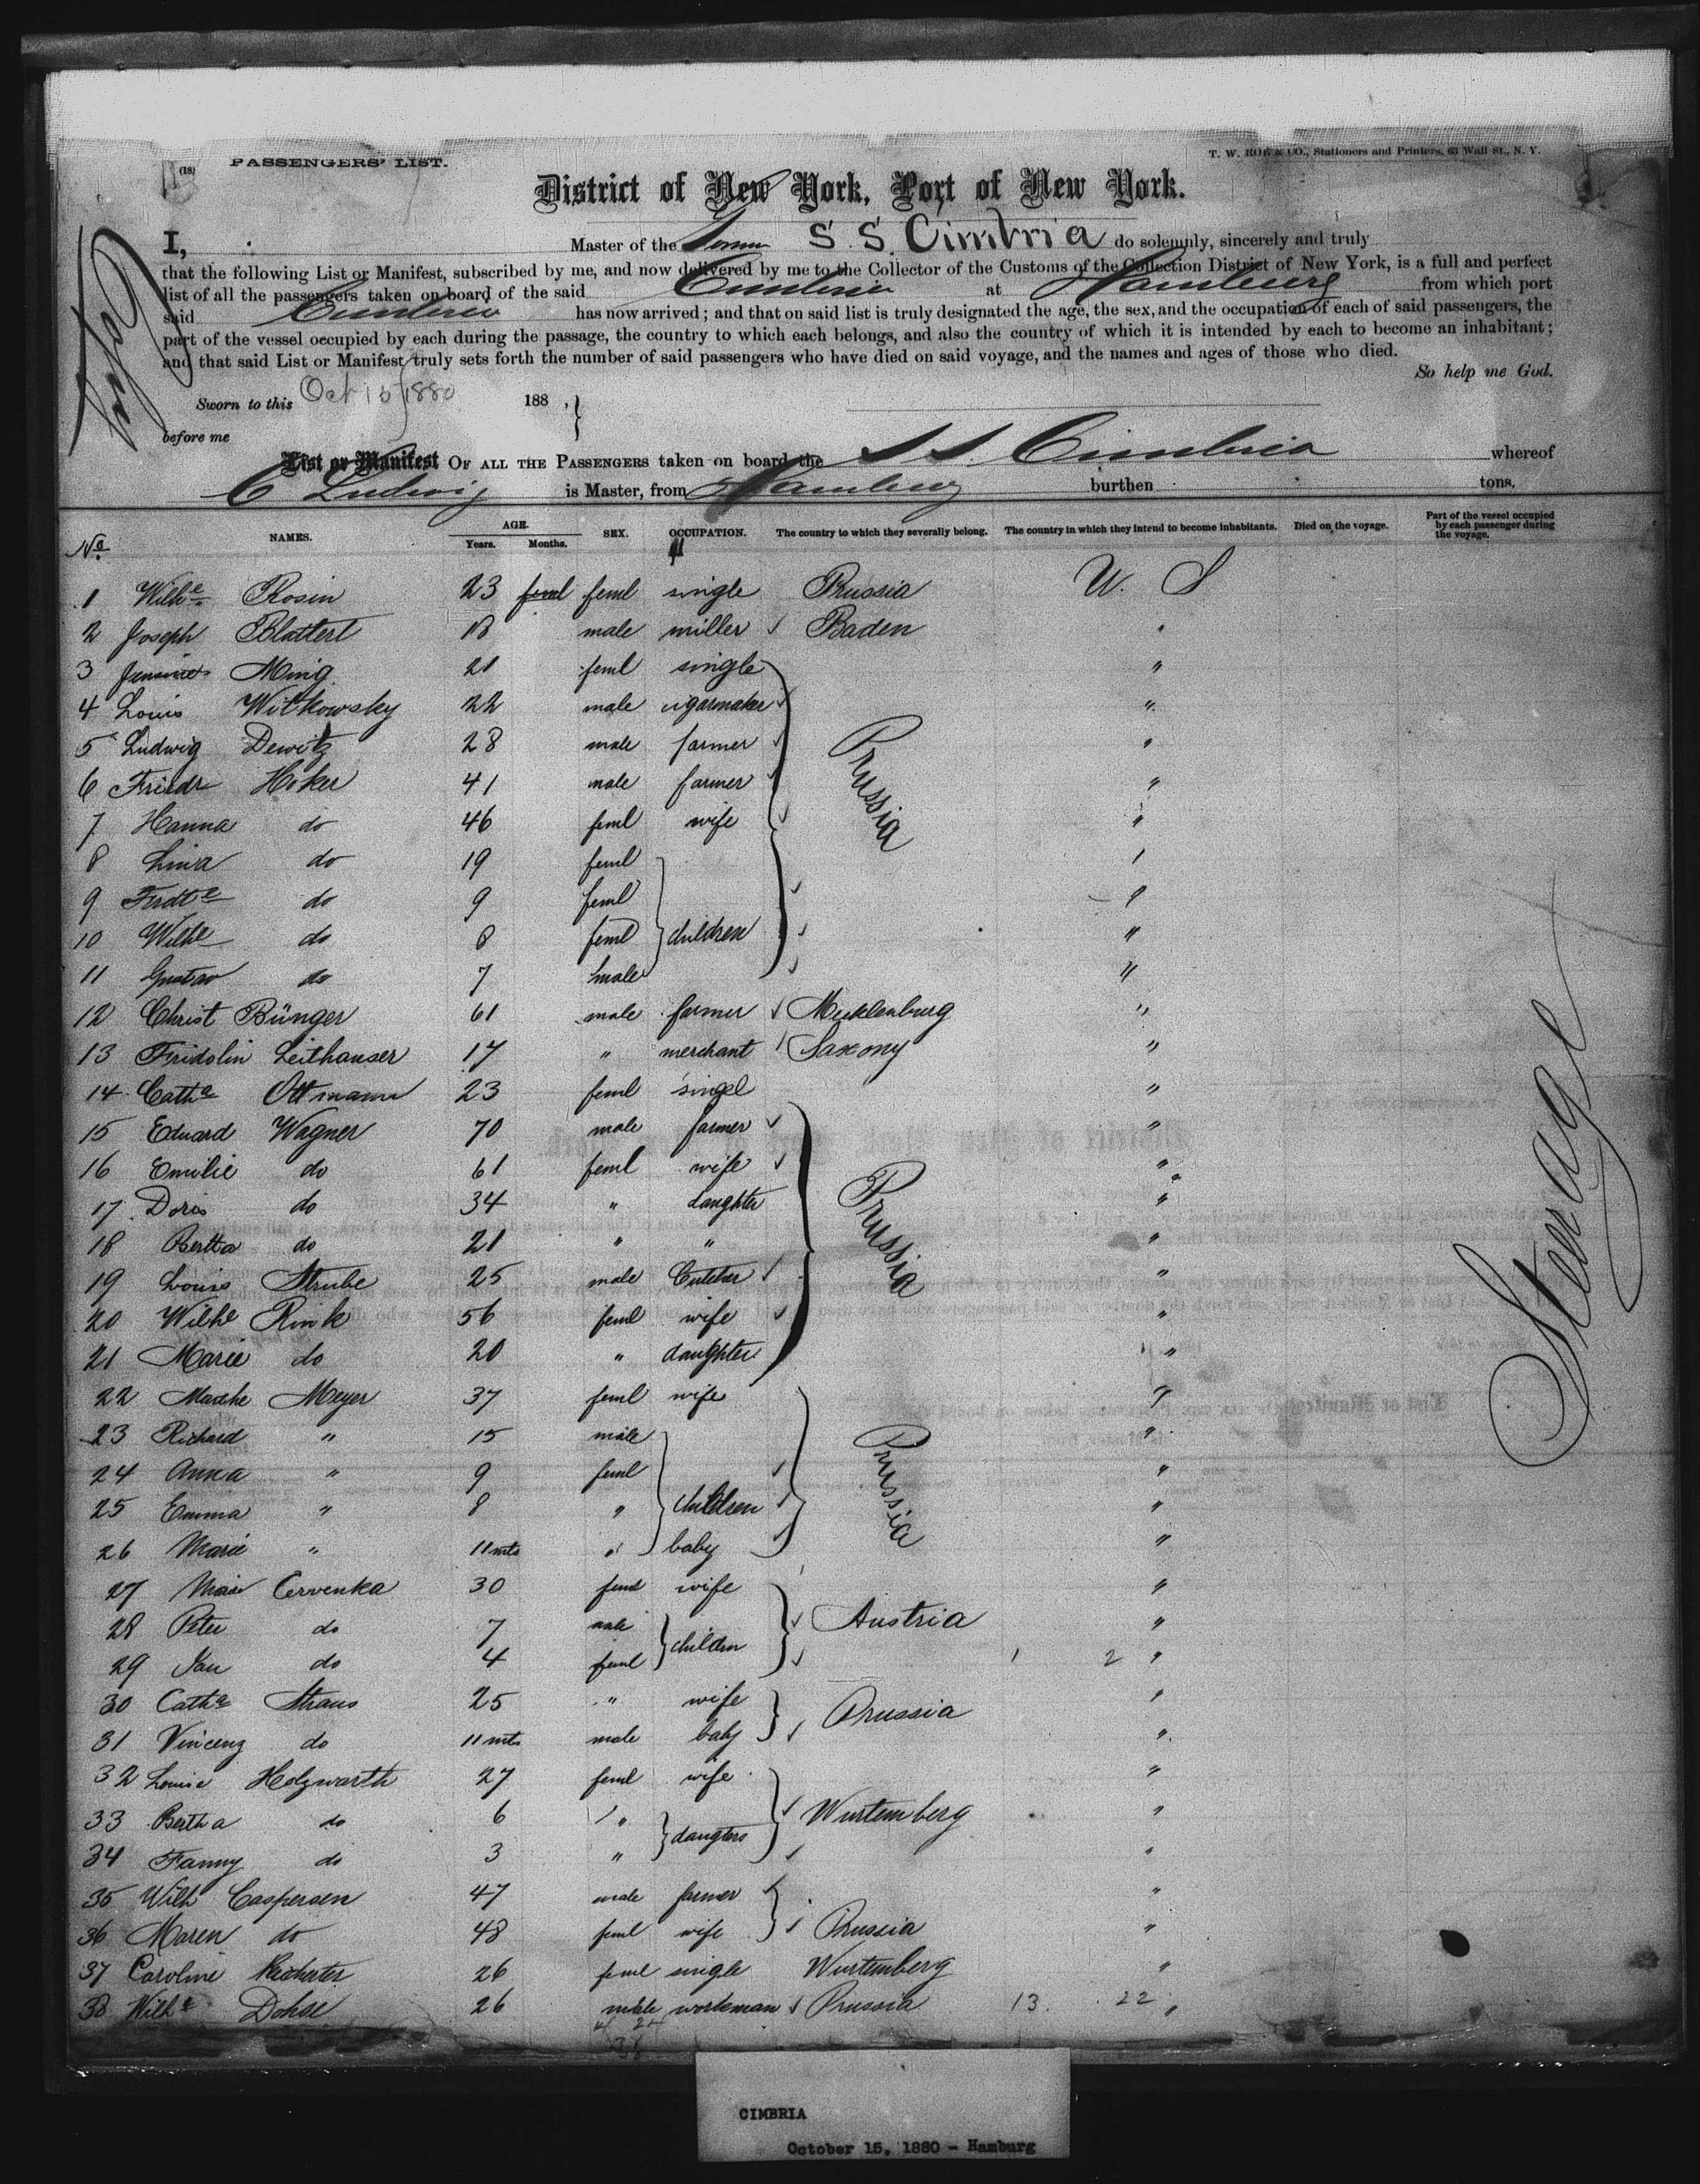 (18) PASSENGERS' LIST.
T. W. ROWE & CO., Stationers and Printers, 63 Wall St., N. Y.
District of New York, Port of New York.
I, Master of the S. S. Cimbria do solemnly, sincerely and truly
that the following List or Manifest, subscribed by me, and now delivered by me to the Collector of the Customs of the Collection District of New York, is a full and perfect
list of all the passengers taken on board of the said Cimbria at Hamburg from which port
said Cimbria has now arrived; and that on said list is truly designated the age, the sex, and the occupation of each of said passengers, the
part of the vessel occupied by each during the passage, the country to which each belongs, and also the country of which it is intended by each to become an inhabitant;
and that said List or Manifest truly sets forth the number of said passengers who have died on said voyage, and the names and ages of those who died.
So help me God.
Sworn to this Oct 15/1880 188 ,
before me
List or Manifest OF ALL THE PASSENGERS taken on board the S S. Cimbria whereof
C Ludwig is Master, from Hamburg burthen tons.
No. NAMES. AGE. Years. Months. SEX. OCCUPATION. The country to which they severally belong. The country in which they intend to become inhabitants. Died on the voyage. Part of the vessel occupied by each passenger during the voyage.
1 Wilhe Rosin 23 feml feml single Prussia U. S
2 Joseph Blattert 18 male miller Baden "
3 Ming 21 feml single "
4 Louis Witkowsky 22 male cigarmaker "
5 Ludwig Dewitz 28 male farmer Prussia "
6 Friedr Hoker 41 male farmer "
7 Hanna do 46 feml wife "
8 Lina do 19 feml "
9 Ferdte do 9 feml "
10 Wilhe do 8 feml children "
11 Gustav do 7 male "
12 Christ Bünger 61 male farmer Mecklenburg "
13 Fridolin Leithauser 17 " merchant Saxony "
14 Catha Ottmann 23 feml singel "
15 Eduard Wagner 70 male farmer "
16 Emilie do 61 feml wife "
17 Doris do 34 " daughter Prussia "
18 Bertha do 21 " " "
19 Louis Strube 25 male "
20 Wilhe Rink 56 feml wife "
21 Marie do 20 " daughter "
22 Meyer 37 feml wife "
23 Richard " 15 male Prussia "
24 Anna " 9 feml "
25 Emma " 8 " children "
26 Marie " 11 mts " baby "
27 Cervenka 30 feml wife "
28 Peter do 7 male children Austria "
29 Jan do 4 feml 1 2 "
30 Catha Straus 25 " wife Prussia "
31 Vincenz do 11 mts male baby "
32 Louise Holzwarth 27 feml wife "
33 Bertha do 6 " daugters Wurtemberg "
34 Fanny do 3 " "
35 Wilh Caspersen 47 male farmer "
36 Maren do 48 feml wife Prussia "
37 Caroline Richter 26 feml single Wurtemberg "
38 Wilhe Dohse 26 male workman Prussia 13. 22 "
38
Steerage
CIMBRIA
October 15, 1880 - Hamburg